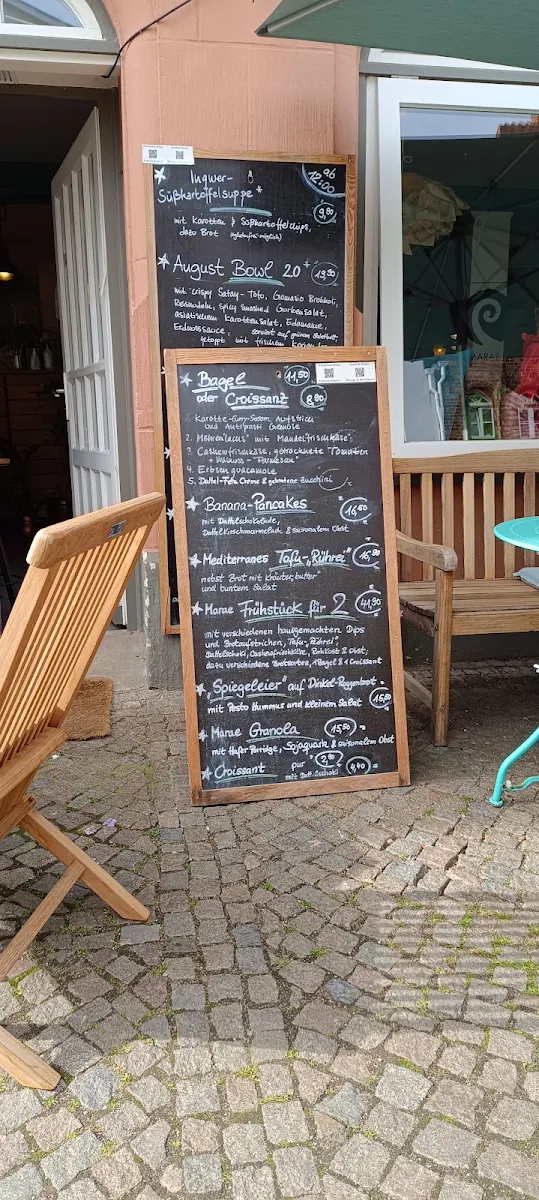 Ingwer-
Süßkartoffelsuppe*
mit Karotten & Süßkartoffelchips,
dazu Brot (glutenfrei möglich)
9,90
August Bowl 2.0*
13,90
mit crispy Satay-Tofu, Gomasio Brokkoli,
Reisnudeln, Spicy Smashed Gurkensalat,
asiatischem Karottensalat, Edamame,
Erdnusssauce, serviert auf grünem
getoppt mit frischem
Bagel 11,50
oder Croissant 8,90
1. Karotte-Curry-Sesam Aufstrich
und Antipasti Gemüse
2. Möhren"lachs" mit Mandel"frischkäse"
3. Cashewfrischkäse, getrocknete Tomaten
+ Walnuss-"Parmesan"
4. Erbsenguacamole
5. Dattel-Feta Creme & gebratene Zucchini
Banana-Pancakes
mit Dattelschokolade,
Dattelkirschmarmelade & saisonalem Obst
Mediterranes Tofu-"Rührei"
nebst Brot mit Kräuter"butter"
und buntem Salat
Marae Frühstück für 2 41,90
mit verschiedenen hausgemachten Dips
und Brotaufstrichen, Tofu-"Rührei"
Dattelschoki, Cashewfrischkäse, Rohkost & Obst,
dazu verschiedene Brotsorten, 1 Bagel & 1 Croissant
"Spiegeleier" auf Dinkel-Roggenbrot
mit Pesto Hummus und kleinem Salat 15,50
Marae Granola 15,50
mit Hafer Porridge, Sojaquark & saisonalem Obst
Croissant pur 2,90
mit Datt.-Schoki 4,40
MARAE